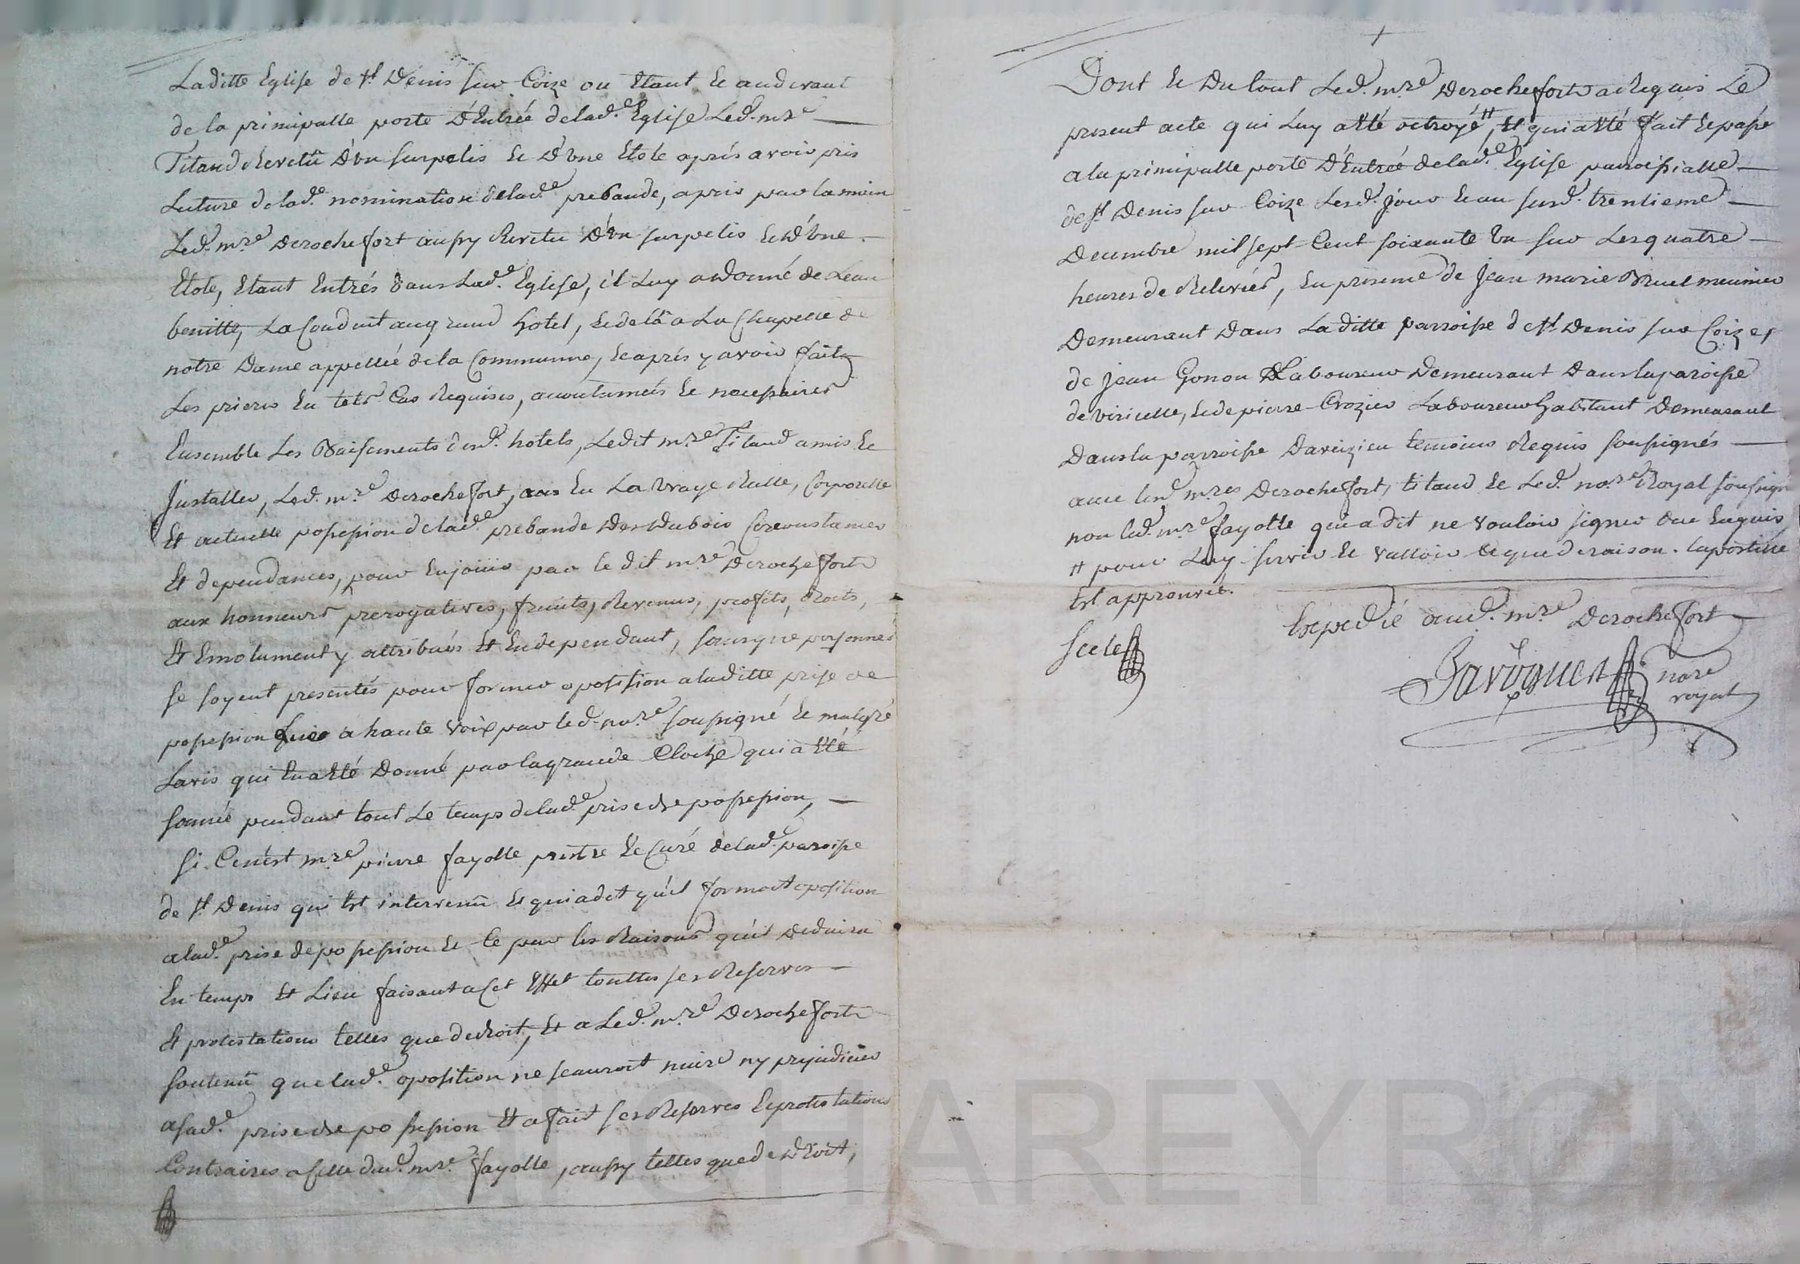 Laditte Eglise de St Denis sur Coize ou Etant Et audevant
de la principalle porte D'Entrée delad.e Eglise Led. m.re
Titaud Revetû D'un surpelis Et D'une Etole aprés avoir pris
Lecture delad.e nomination delad.e prebande, a pris par la main
Led. m.re Derochefort aussy Revetu D'un surpelis Et D'une
Etole, Etant Entrés dans Lad.e Eglise, il Luy a donné de Leau
benitte, La Conduit au grand hotel, Et de là a La Chapelle de
notre Dame appellée de la Communne, Et aprés y avoir fait
Les prieres En tels Cas Requises, accoutumeés Et necessaires
Ensemble Les Baisements desd. hotels, Ledit m.re Titaud a mis Et
Installer, Led. m.re Derochefort, En La vraye Reelle, Corporelle
Et actuelle possession delad.e prebande Des Dubois Circonstances
Et dependances, pour En joüir par le dit m.re Derochefort
aux honneurs prerogatives, fruits, Revenus, profits, droits,
Et Emolument y attribués Et En dependant, sans que personnes
se soyent presentés pour former oposition a laditte prise de
possession a haute voix par led. no.re soussigné Et malgré
Lavis qui En a Eté Donné par la grande Cloche qui a Eté
sonnée pendant tout Le temps delad.e prise de possession,
si Ce n'est m.re pierre fayolle prêtre Et Curé delad. paroisse
de St Denis qui Est intervenû Et qui a dit qu'il formoit oposition
a lad.e prise de possession Et Ce par les Raisons qu'il Deduira
En temps Et Lieu faisant a Cet Effet touttes ses Reserves
Et protestations telles que de droit, Et a Led. m.re Derochefort
soutenû que lad.e oposition ne scauroit nuire ny prejudicier
a sad.e prise de possession Et a fait ses Reserves Et protestations
Contraires a Celle dud. m.re fayolle, aussy telles que de Droit,
Dont Et Du tout Led. m.re Derochefort a Requis Le
present acte qui Luy a Eté octroyé #, Et qui a Eté fait Et passé
a la principalle porte D'Entrée delad.e Eglise parroissialle
de St Denis sur Coize Lesd. jour Et an susd. trentieme
Decembre mil sept Cent soixante un sur Les quatre
heures de Relevéé, En presence de Jean marie Bruel meunier
Demeurant Dans Laditte parroisse de St Denis sur Coize,
de Jean Gonon Laboureur Demeurant Dans la paroisse
de viricelle, Et de pierre Crozier Laboureur habitant Demeurant
Dans la parroisse Daveizieu temoins Requis soussignés
avec m.res Derochefort, titaud Et Led. no.re Royal soussigné
non led. m.re fayolle qui a dit ne vouloir signer De Ce Enquis,
# pour Luy servir Et valloir Ce que de raison. Lapostille
Est approuvée.
Scelé
Expedié aud. m.re Derochefort
Javogues
no.re
royal
CHAREYRON